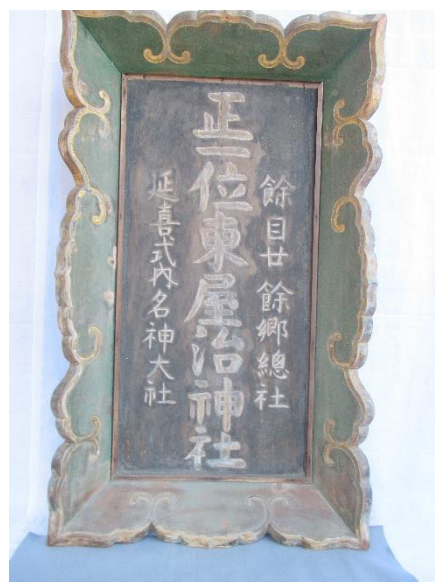 餘目廿餘郷總社
正一位東屋治神社
延喜式内名神大社